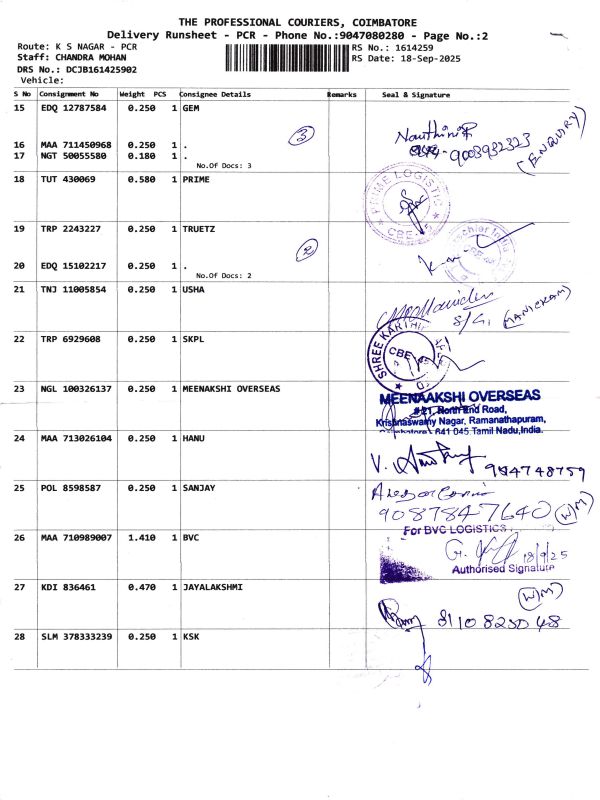 THE PROFESSIONAL COURIERS, COIMBATORE
Delivery Runsheet - PCR - Phone No.:9047080280 - Page No.:2
Route: K S NAGAR - PCR
RS No.: 1614259
Staff: CHANDRA MOHAN
RS Date: 18-Sep-2025
DRS No.: DCJB161425902
Vehicle:
S No Consignment No Weight PCS Consignee Details Remarks Seal & Signature
15 EDQ 12787584 0.250 1 GEM
3
16 MAA 711450968 0.250 1 .
17 NGT 50055580 0.180 1 .
No.Of Docs: 3
9003932323
(ENQUIRY)
18 TUT 430069 0.580 1 PRIME
PRIME LOGISTIC
CBE
19 TRP 2243227 0.250 1 TRUETZ
2
20 EDQ 15102217 0.250 1 .
No.Of Docs: 2
21 TNJ 11005854 0.250 1 USHA
S/G1 (MANICKAM)
22 TRP 6929608 0.250 1 SKPL
SHREE KARTHIK
CBE
23 NGL 100326137 0.250 1 MEENAKSHI OVERSEAS
MEENAAKSHI OVERSEAS
#21, North End Road,
Krishnaswamy Nagar, Ramanathapuram,
Coimbatore 641 045 Tamil Nadu, India.
24 MAA 713026104 0.250 1 HANU
25 POL 8598587 0.250 1 SANJAY
9087847640 (W/M)
26 MAA 710989007 1.410 1 BVC
For BVC LOGISTICS
18/9/25
Authorised Signature
27 KDI 836461 0.470 1 JAYALAKSHMI
(W/M)
28 SLM 378333239 0.250 1 KSK